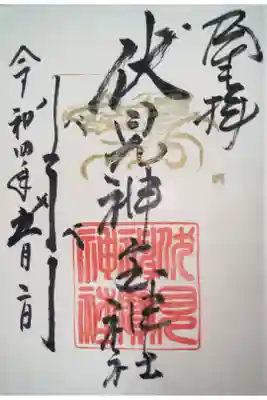 奉拝
伏見神宝神社
令和四年五月二日
伏見
神寶
神社